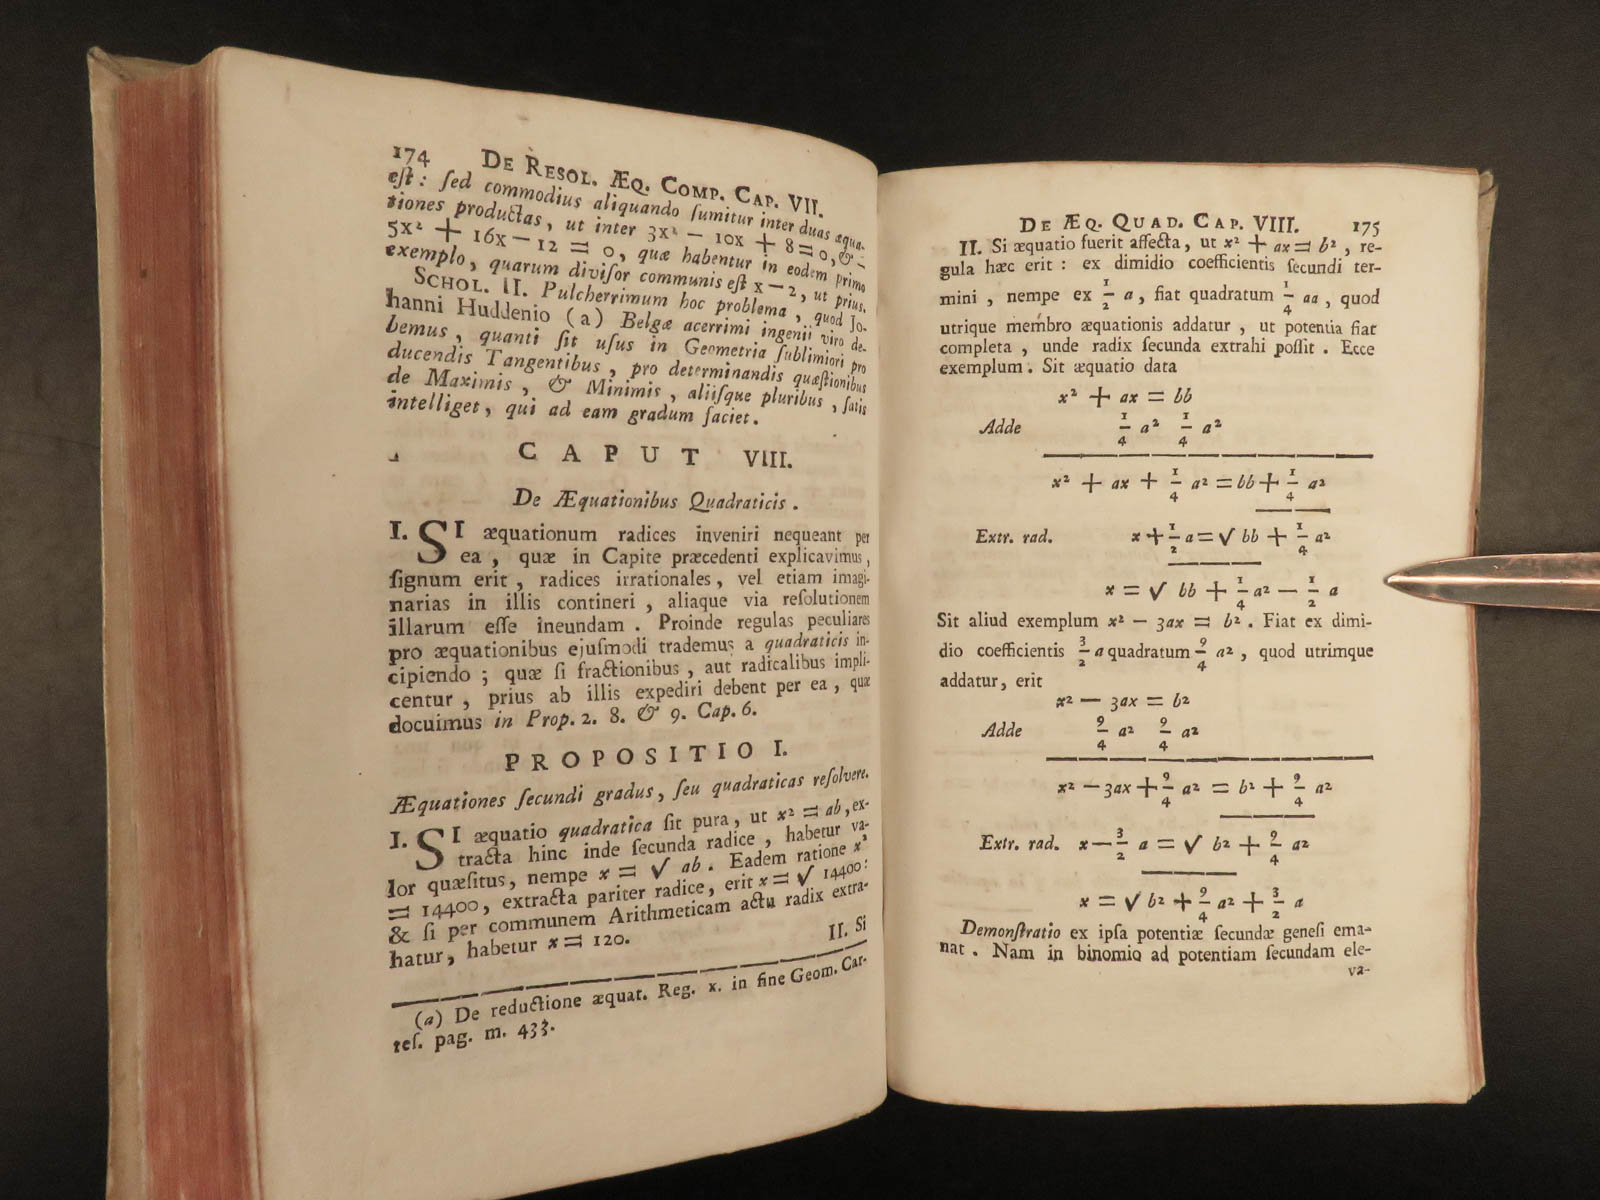 174 DE RESOL. ÆQ. COMP. CAP. VII.
eſt: ſed commodius aliquando ſumitur inter duas æqua-
tiones productas, ut inter 3x² — 10x + 8 = 0, & -
5x² + 16x — 12 = 0, quæ habentur in eodem primo
exemplo, quarum diviſor communis eſt x — 2, ut prius.
SCHOL. II. Pulcherrimum hoc problema, quod Jo-
hanni Huddenio (a) Belgæ acerrimi ingenii viro de-
bemus, quanti ſit uſus in Geometria ſublimiori pro
ducendis Tangentibus, pro determinandis quæſtionibus
de Maximis, & Minimis, aliiſque pluribus, ſatis
intelliget, qui ad eam gradum faciet.
CAPUT VIII.
De Æquationibus Quadraticis.
I. SI æquationum radices inveniri nequeant per
ea, quæ in Capite præcedenti explicavimus,
ſignum erit, radices irrationales, vel etiam imagi-
narias in illis contineri, aliaque via reſolutionem
illarum eſſe ineundam. Proinde regulas peculiares
pro æquationibus ejuſmodi trademus a quadraticis in-
cipiendo; quæ ſi fractionibus, aut radicalibus impli-
centur, prius ab illis expediri debent per ea, quæ
docuimus in Prop. 2. 8. & 9. Cap. 6.
PROPOSITIO I.
Æquationes ſecundi gradus, ſeu quadraticas reſolvere.
I. SI æquatio quadratica ſit pura, ut x² = ab, ex-
tracta hinc inde ſecunda radice, habetur va-
lor quæſitus, nempe x = √ ab. Eadem ratione x²
= 14400, extracta pariter radice, erit x = √ 14400:
& ſi per communem Arithmeticam actu radix extra-
hatur, habetur x = 120.
II. Si
(a) De reductione æquat. Reg. x. in fine Geom. Car-
teſ. pag. m. 433.
DE ÆQ. QUAD. CAP. VIII. 175
II. Si æquatio fuerit affecta, ut x² + ax = b², re-
gula hæc erit: ex dimidio coefficientis ſecundi ter-
mini, nempe ex 1/2 a, fiat quadratum 1/4 aa, quod
utrique membro æquationis addatur, ut potentia fiat
completa, unde radix ſecunda extrahi poſſit. Ecce
exemplum. Sit æquatio data
x² + ax = bb
Adde 1/4 a² 1/4 a²
x² + ax + 1/4 a² = bb + 1/4 a²
Extr. rad. x + 1/2 a = √ bb + 1/4 a²
x = √ bb + 1/4 a² — 1/2 a
Sit aliud exemplum x² — 3ax = b². Fiat ex dimi-
dio coefficientis 3/2 a quadratum 9/4 a², quod utrimque
addatur, erit
x² — 3ax = b²
Adde 9/4 a² 9/4 a²
x² — 3ax + 9/4 a² = b² + 9/4 a²
Extr. rad. x — 3/2 a = √ b² + 9/4 a²
x = √ b² + 9/4 a² + 3/2 a
Demonſtratio ex ipſa potentiæ ſecundæ geneſi ema-
nat. Nam in binomio ad potentiam ſecundam ele-
va-